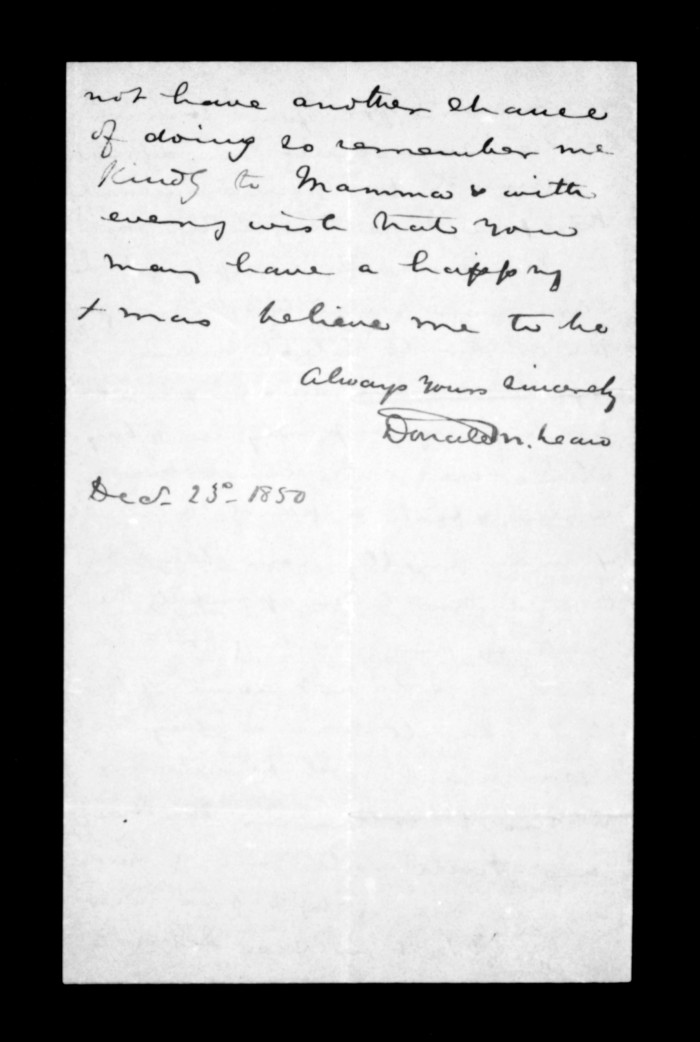 not have another chance
of doing so remember me
Kindly to Mamma & with
every wish that you
may have a happy
Xmas believe me to be
Always yours sincerely
Donald M. Lean
Decr. 23d. 1850